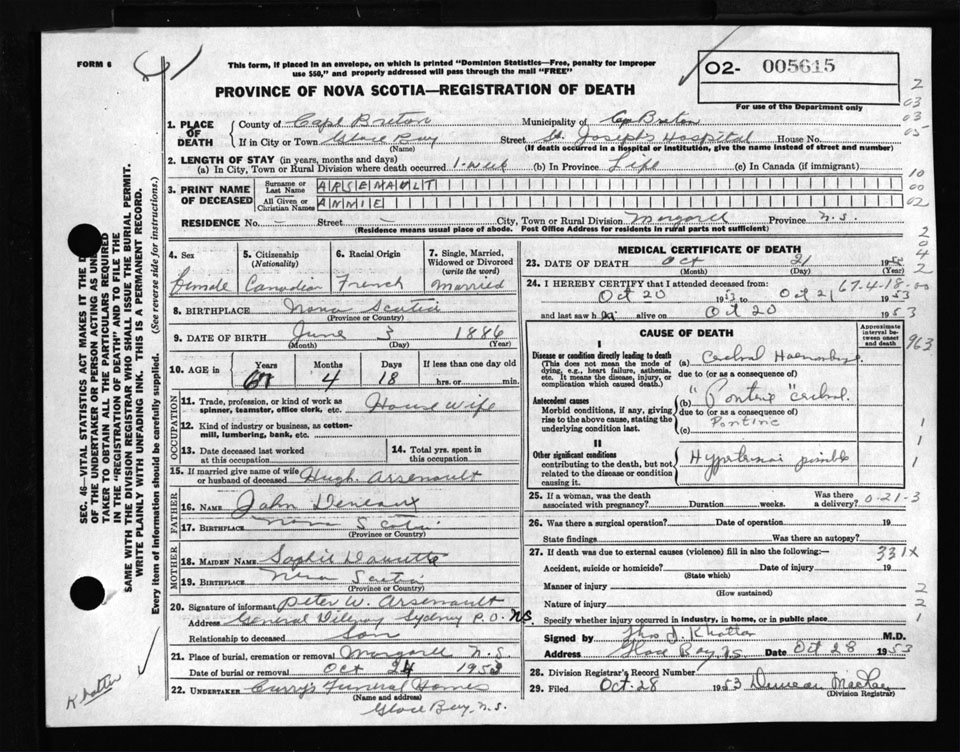 FORM 6
This form, if placed in an envelope, on which is printed "Dominion Statistics—Free, penalty for improper
use $50," and properly addressed will pass through the mail "FREE"
O2- 005615
For use of the Department only
PROVINCE OF NOVA SCOTIA—REGISTRATION OF DEATH
1. PLACE OF DEATH
County of Cape Breton Municipality of Cape Breton
If in City or Town Glace Bay Street St. Joseph's Hospital House No.
(Name) (If death occurred in a Hospital or institution, give the name instead of street and number)
2. LENGTH OF STAY (in years, months and days)
(a) In City, Town or Rural Division where death occurred 1-week (b) In Province Life (c) In Canada (if immigrant)
3. PRINT NAME OF DECEASED
Surname or Last Name ARSENAULT
All Given or Christian Names ANNIE
RESIDENCE No. – Street – City, Town or Rural Division Margaree Province N.S.
(Residence means usual place of abode. Post Office Address for residents in rural parts not sufficient)
4. Sex
Female
5. Citizenship (Nationality)
Canadian
6. Racial Origin
French
7. Single, Married, Widowed or Divorced (write the word)
Married
8. BIRTHPLACE Nova Scotia
(Province or Country)
9. DATE OF BIRTH June 3 1886
(Month) (Day) (Year)
10. AGE in Years 67 Months 4 Days 18 If less than one day old
hrs. or min.
OCCUPATION
11. Trade, profession, or kind of work as spinner, teamster, office clerk, etc. House Wife
12. Kind of industry or business, as cotton-mill, lumbering, bank, etc.
13. Date deceased last worked at this occupation
14. Total yrs. spent in this occupation
15. If married give name of wife or husband of deceased Hugh Arsenault
FATHER
16. NAME John
17. BIRTHPLACE Nova Scotia
(Province or Country)
MOTHER
18. MAIDEN NAME Sophie
19. BIRTHPLACE Nova Scotia
(Province or Country)
20. Signature of informant Peter W. Arsenault
Address General Delivery Sydney P.O. NS.
Relationship to deceased Son
21. Place of burial, cremation or removal Margaree N.S.
Date of burial or removal Oct 24 1953
22. UNDERTAKER Curry's Funeral Homes
(Name and address)
Glace Bay, N.S.
MEDICAL CERTIFICATE OF DEATH
23. DATE OF DEATH Oct 21 19
(Month) (Day) (Year)
24. I HEREBY CERTIFY that I attended deceased from: 67-4-18-00
Oct 20 1953 to Oct 21 1953
and last saw h alive on Oct 20 1953
CAUSE OF DEATH
Approximate interval between onset and death
I
Disease or condition directly leading to death
(This does not mean the mode of dying, e.g., heart failure, asthenia, etc. It means the disease, injury, or complication which caused death.)
(a) Cerebral Haemorrhage
due to (or as a consequence of)
Antecedent causes
Morbid conditions, if any, giving rise to the above cause, stating the underlying condition last.
(b) "Pontine" Cerebral.
due to (or as a consequence of)
Pontine
(c)
II
Other significant conditions
contributing to the death, but not related to the disease or condition causing it.
possible
25. If a woman, was the death associated with pregnancy? Duration weeks. Was there a delivery? 0-21-3
26. Was there a surgical operation? Date of operation 19
State findings Was there an autopsy?
27. If death was due to external causes (violence) fill in also the following:— 331X
Accident, suicide or homicide? Date of injury 19
(State which)
Manner of injury
(How sustained)
Nature of injury
Specify whether injury occurred in industry, in home, or in public place
Signed by Thos J. Khattar M.D.
Address Glace Bay NS Date Oct 28 1953
28. Division Registrar's Record Number
29. Filed Oct. 28 1953 Duncan MacRae
(Division Registrar)
2
03
03
05
10
00
02
2
0
4
2
963
1
1
1
2
2
1
SEC. 46—VITAL STATISTICS ACT MAKES IT THE D
OF THE UNDERTAKER OR PERSON ACTING AS UND
TAKER TO OBTAIN ALL THE PARTICULARS REQUIRED
IN THE "REGISTRATION OF DEATH" AND TO FILE THE
SAME WITH THE DIVISION REGISTRAR WHO SHALL ISSUE THE BURIAL PERMIT.
WRITE PLAINLY WITH UNFADING INK. THIS IS A PERMANENT RECORD.
Every item of information should be carefully supplied. (See reverse side for instructions.)
Khattar